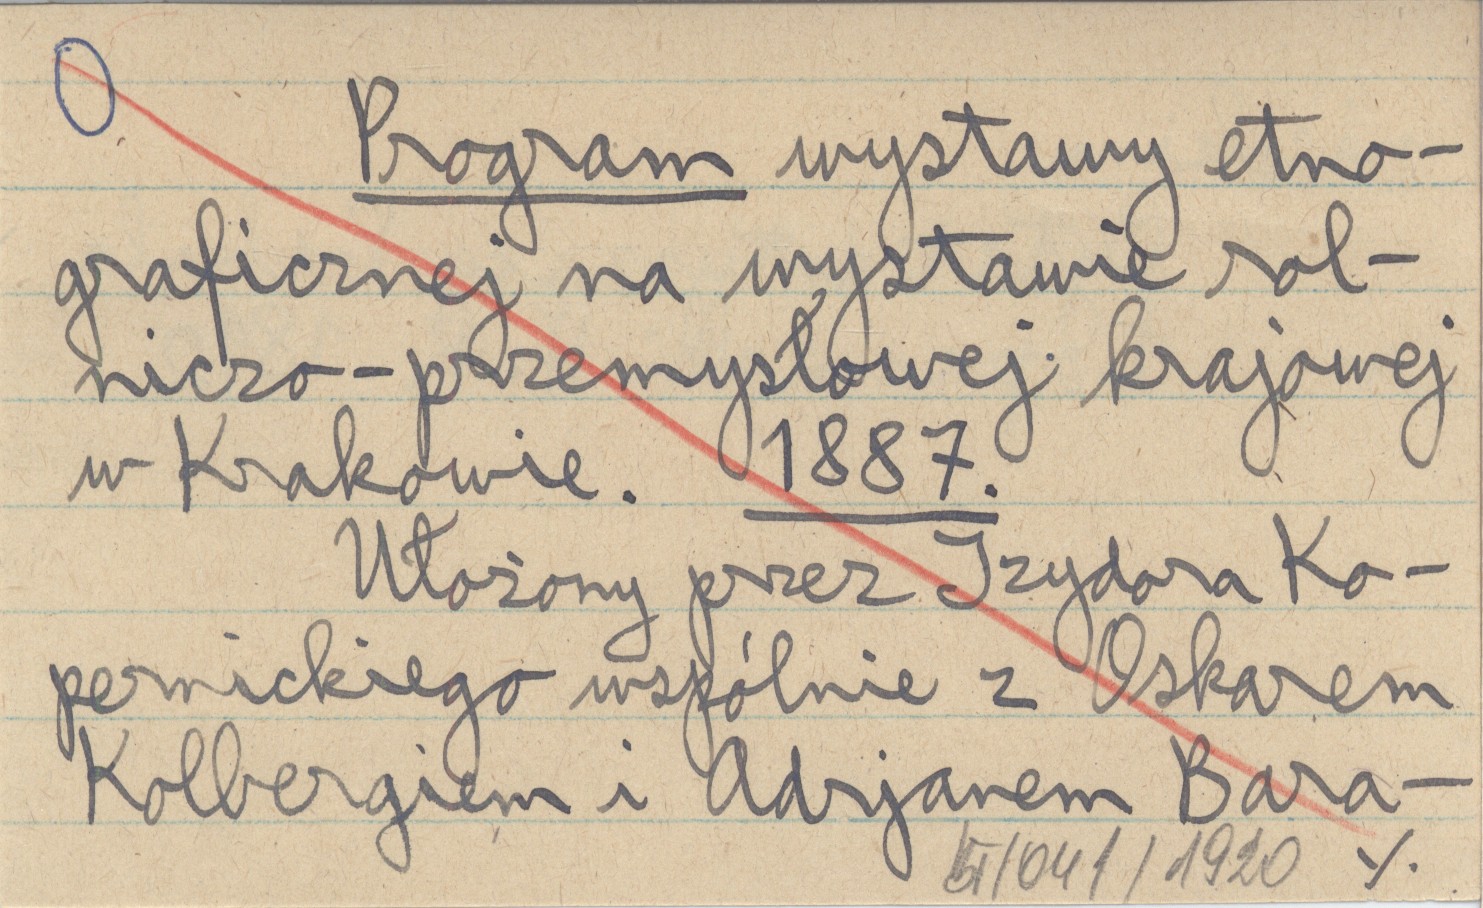 Program wystawy etno-
graficznej na wystawie rol-
niczo-przemysłowej krajowej
w Krakowie. 1887.
Ułożony przez Izydora Ko-
pernickiego wspólnie z Oskarem
Kolbergiem i Adrjanem Bara-
/041/1920 ./.